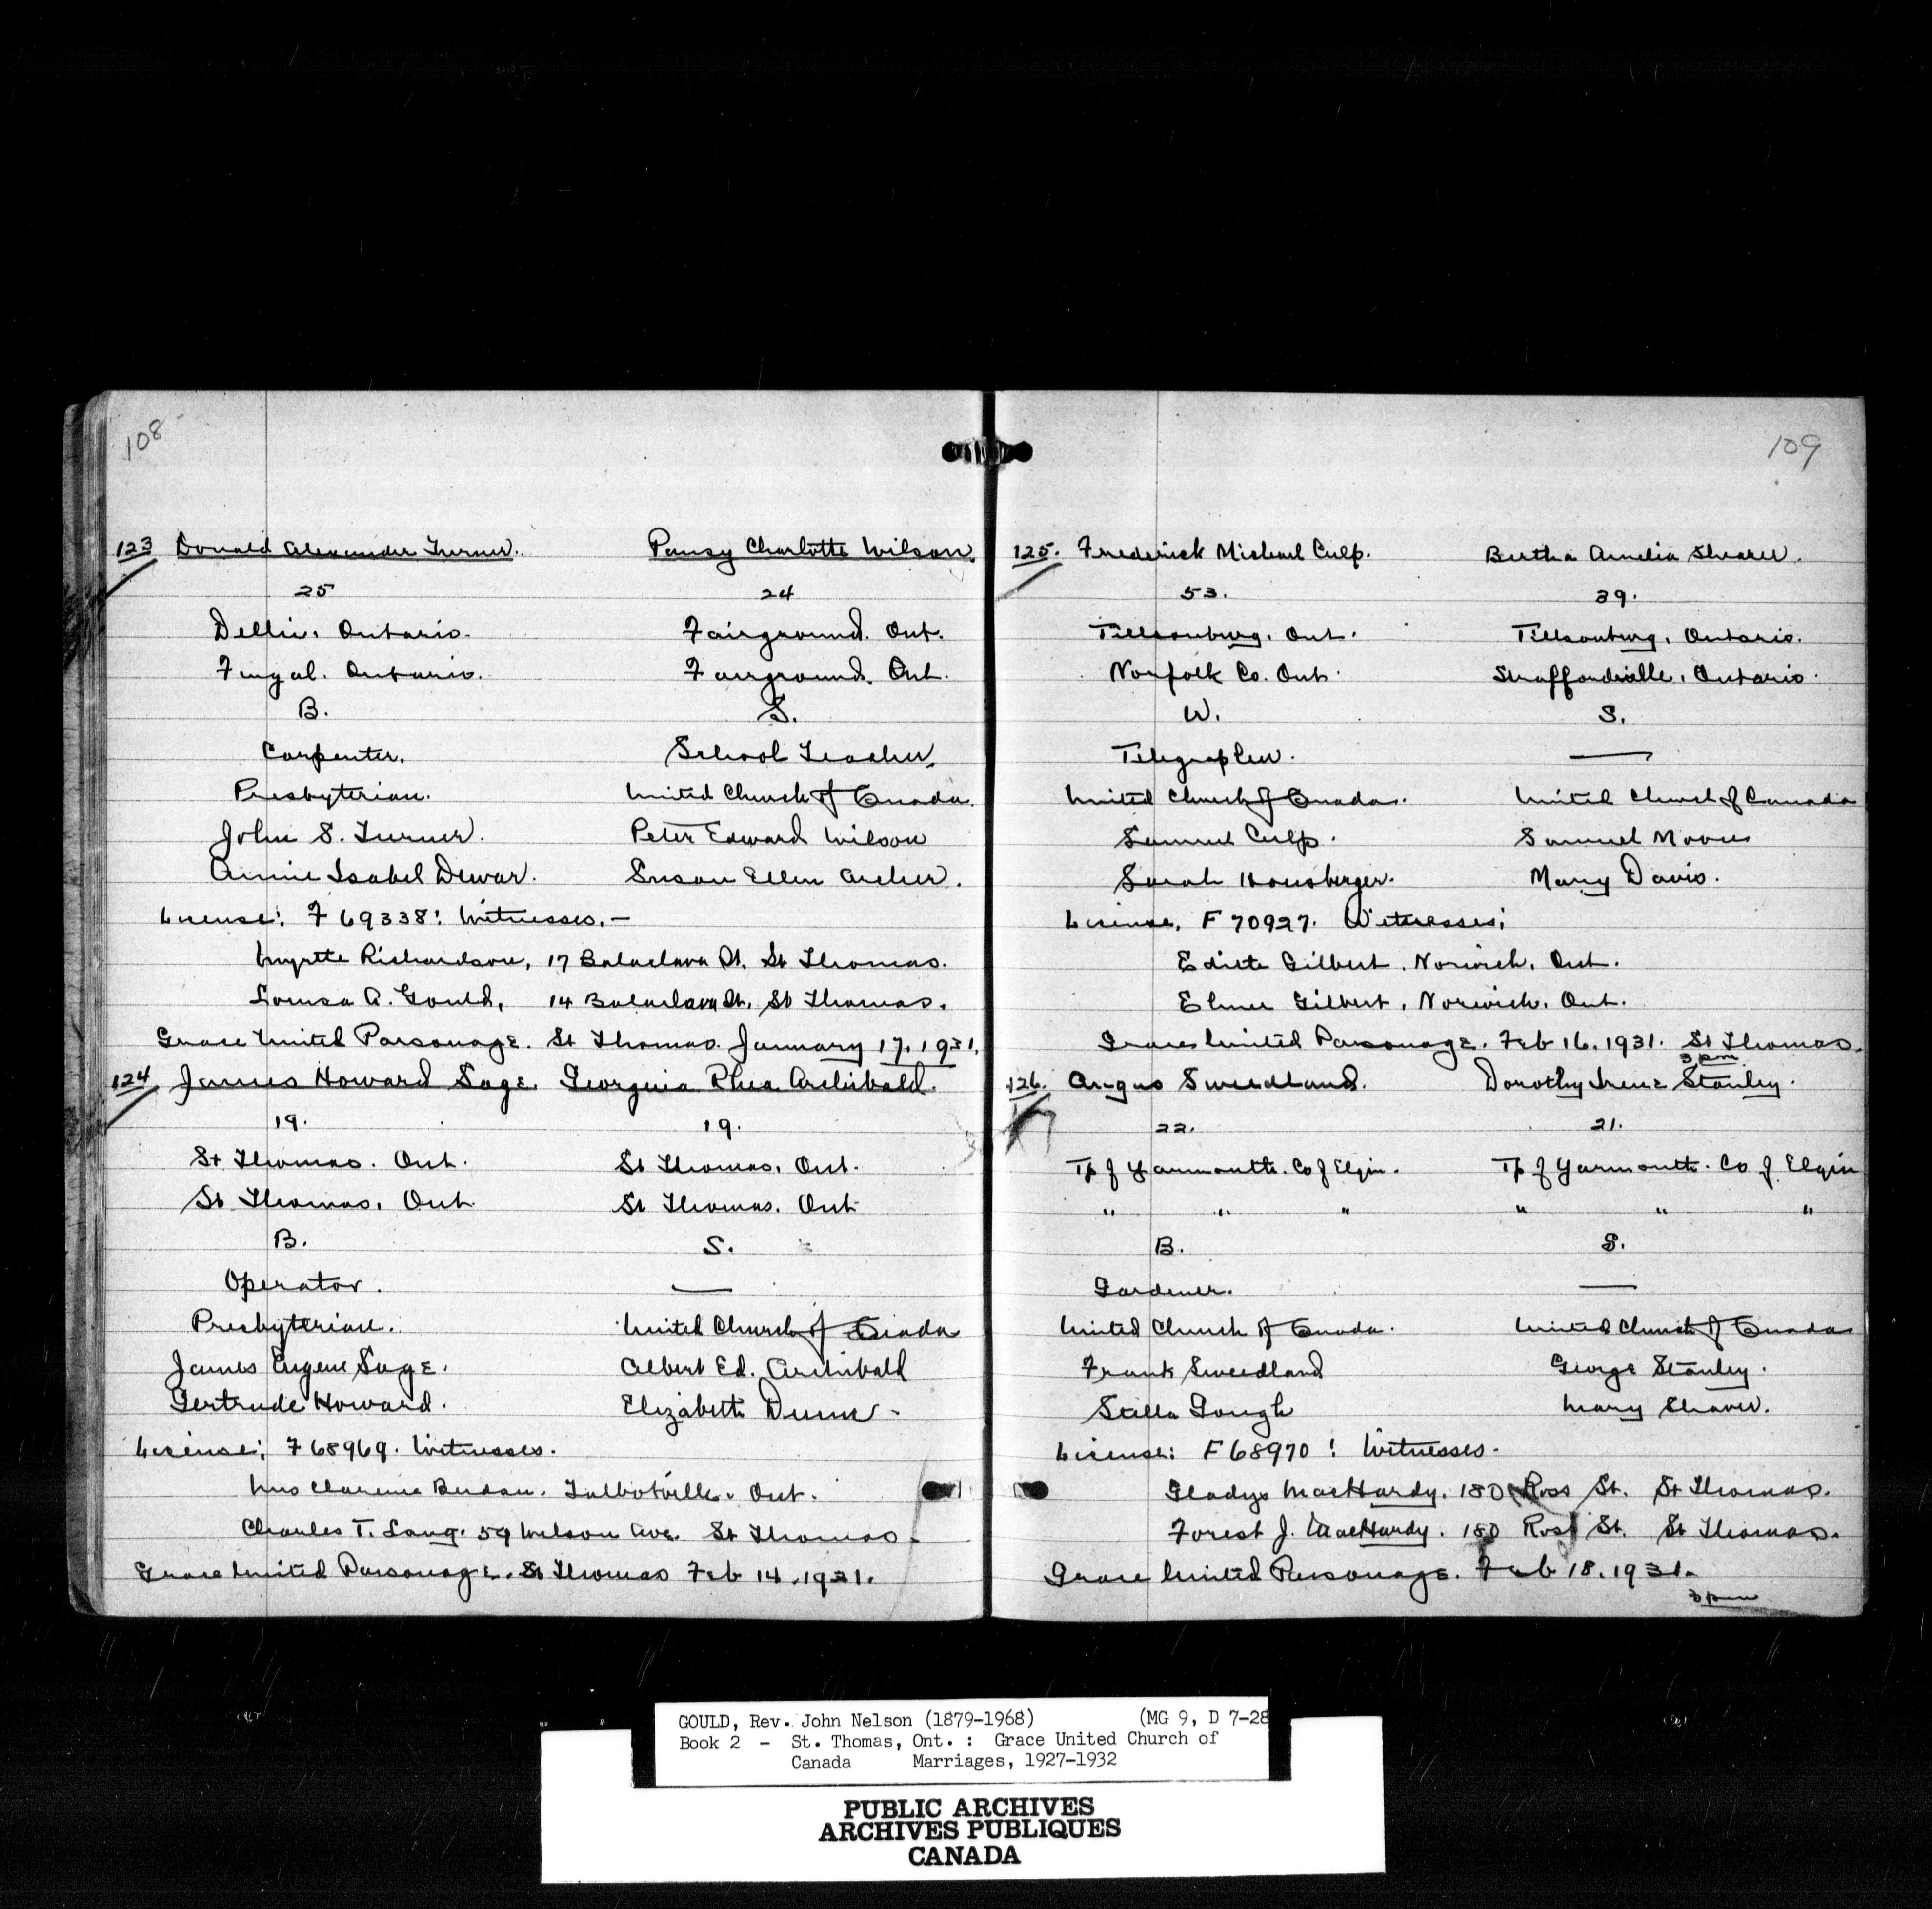 108
123 Donald Alexander Turner. Pansy Charlotte Wilson.
25 24
Delhi. Ontario. Fairground. Ont.
Fingal. Ontario. Fairground. Ont.
B. S.
Carpenter. School Teacher.
Presbyterian. United Church of Canada.
John S. Turner. Peter Edward Wilson
Annie Isabel Dewar. Susan Ellen Archer.
License: F 69338: Witnesses. —
Myrtle Richardson, 17 Balaclava St. St Thomas.
Louisa A. Gould, 14 Balaclava St. St Thomas.
Grace United Parsonage. St Thomas. January 17. 1931.
124 James Howard Sage. Georgina Rhea Archibald.
19. 19.
St Thomas. Ont. St Thomas. Ont.
St Thomas. Ont. St Thomas. Ont.
B. S.
Operator. —
Presbyterian. United Church of Canada
James Eugene Sage. Albert Ed. Archibald
Gertrude Howard. Elizabeth Dunn -
License: F 68969. Witnesses.
Mrs Clarence Talbotville. Ont.
Charles T. Lang. 59 Wilson Ave. St Thomas.
Grace United Parsonage. St Thomas Feb 14. 1931.
109
125. Frederick Michael Culp. Bertha Amelia Shearer.
53. 39.
Tillsonburg. Ont. Tillsonburg. Ontario.
Norfolk Co. Ont. Straffordville. Ontario.
W. S.
Telegrapher. —
United Church of Canada. United Church of Canada
Samuel Culp. Samuel Moore
Sarah Honsberger. Mary Davis.
License. F 70927. Witnesses:
Edith Gilbert. Norwich. Ont.
Elmer Gilbert. Norwich. Ont.
Grace United Parsonage. Feb 16. 1931. St Thomas.
3 pm
126. Angus Sweedland. Dorothy Irene Stanley.
22. 21.
Tp of Yarmouth. Co of Elgin. Tp of Yarmouth. Co of Elgin
" " " " " "
B. S.
Gardener. —
United Church of Canada. United Church of Canada
Frank Sweedland George Stanley.
Stella Gough Mary Shaver.
License: F 68970: Witnesses.
Gladys MacHardy. 180 Ross St. St Thomas.
Forest J. MacHardy. 180 Ross St. St Thomas.
Grace United Parsonage. Feb 18. 1931.
3 pm
GOULD, Rev. John Nelson (1879-1968) (MG 9, D 7-28
Book 2 - St. Thomas, Ont. : Grace United Church of
Canada Marriages, 1927-1932
PUBLIC ARCHIVES
ARCHIVES PUBLIQUES
CANADA